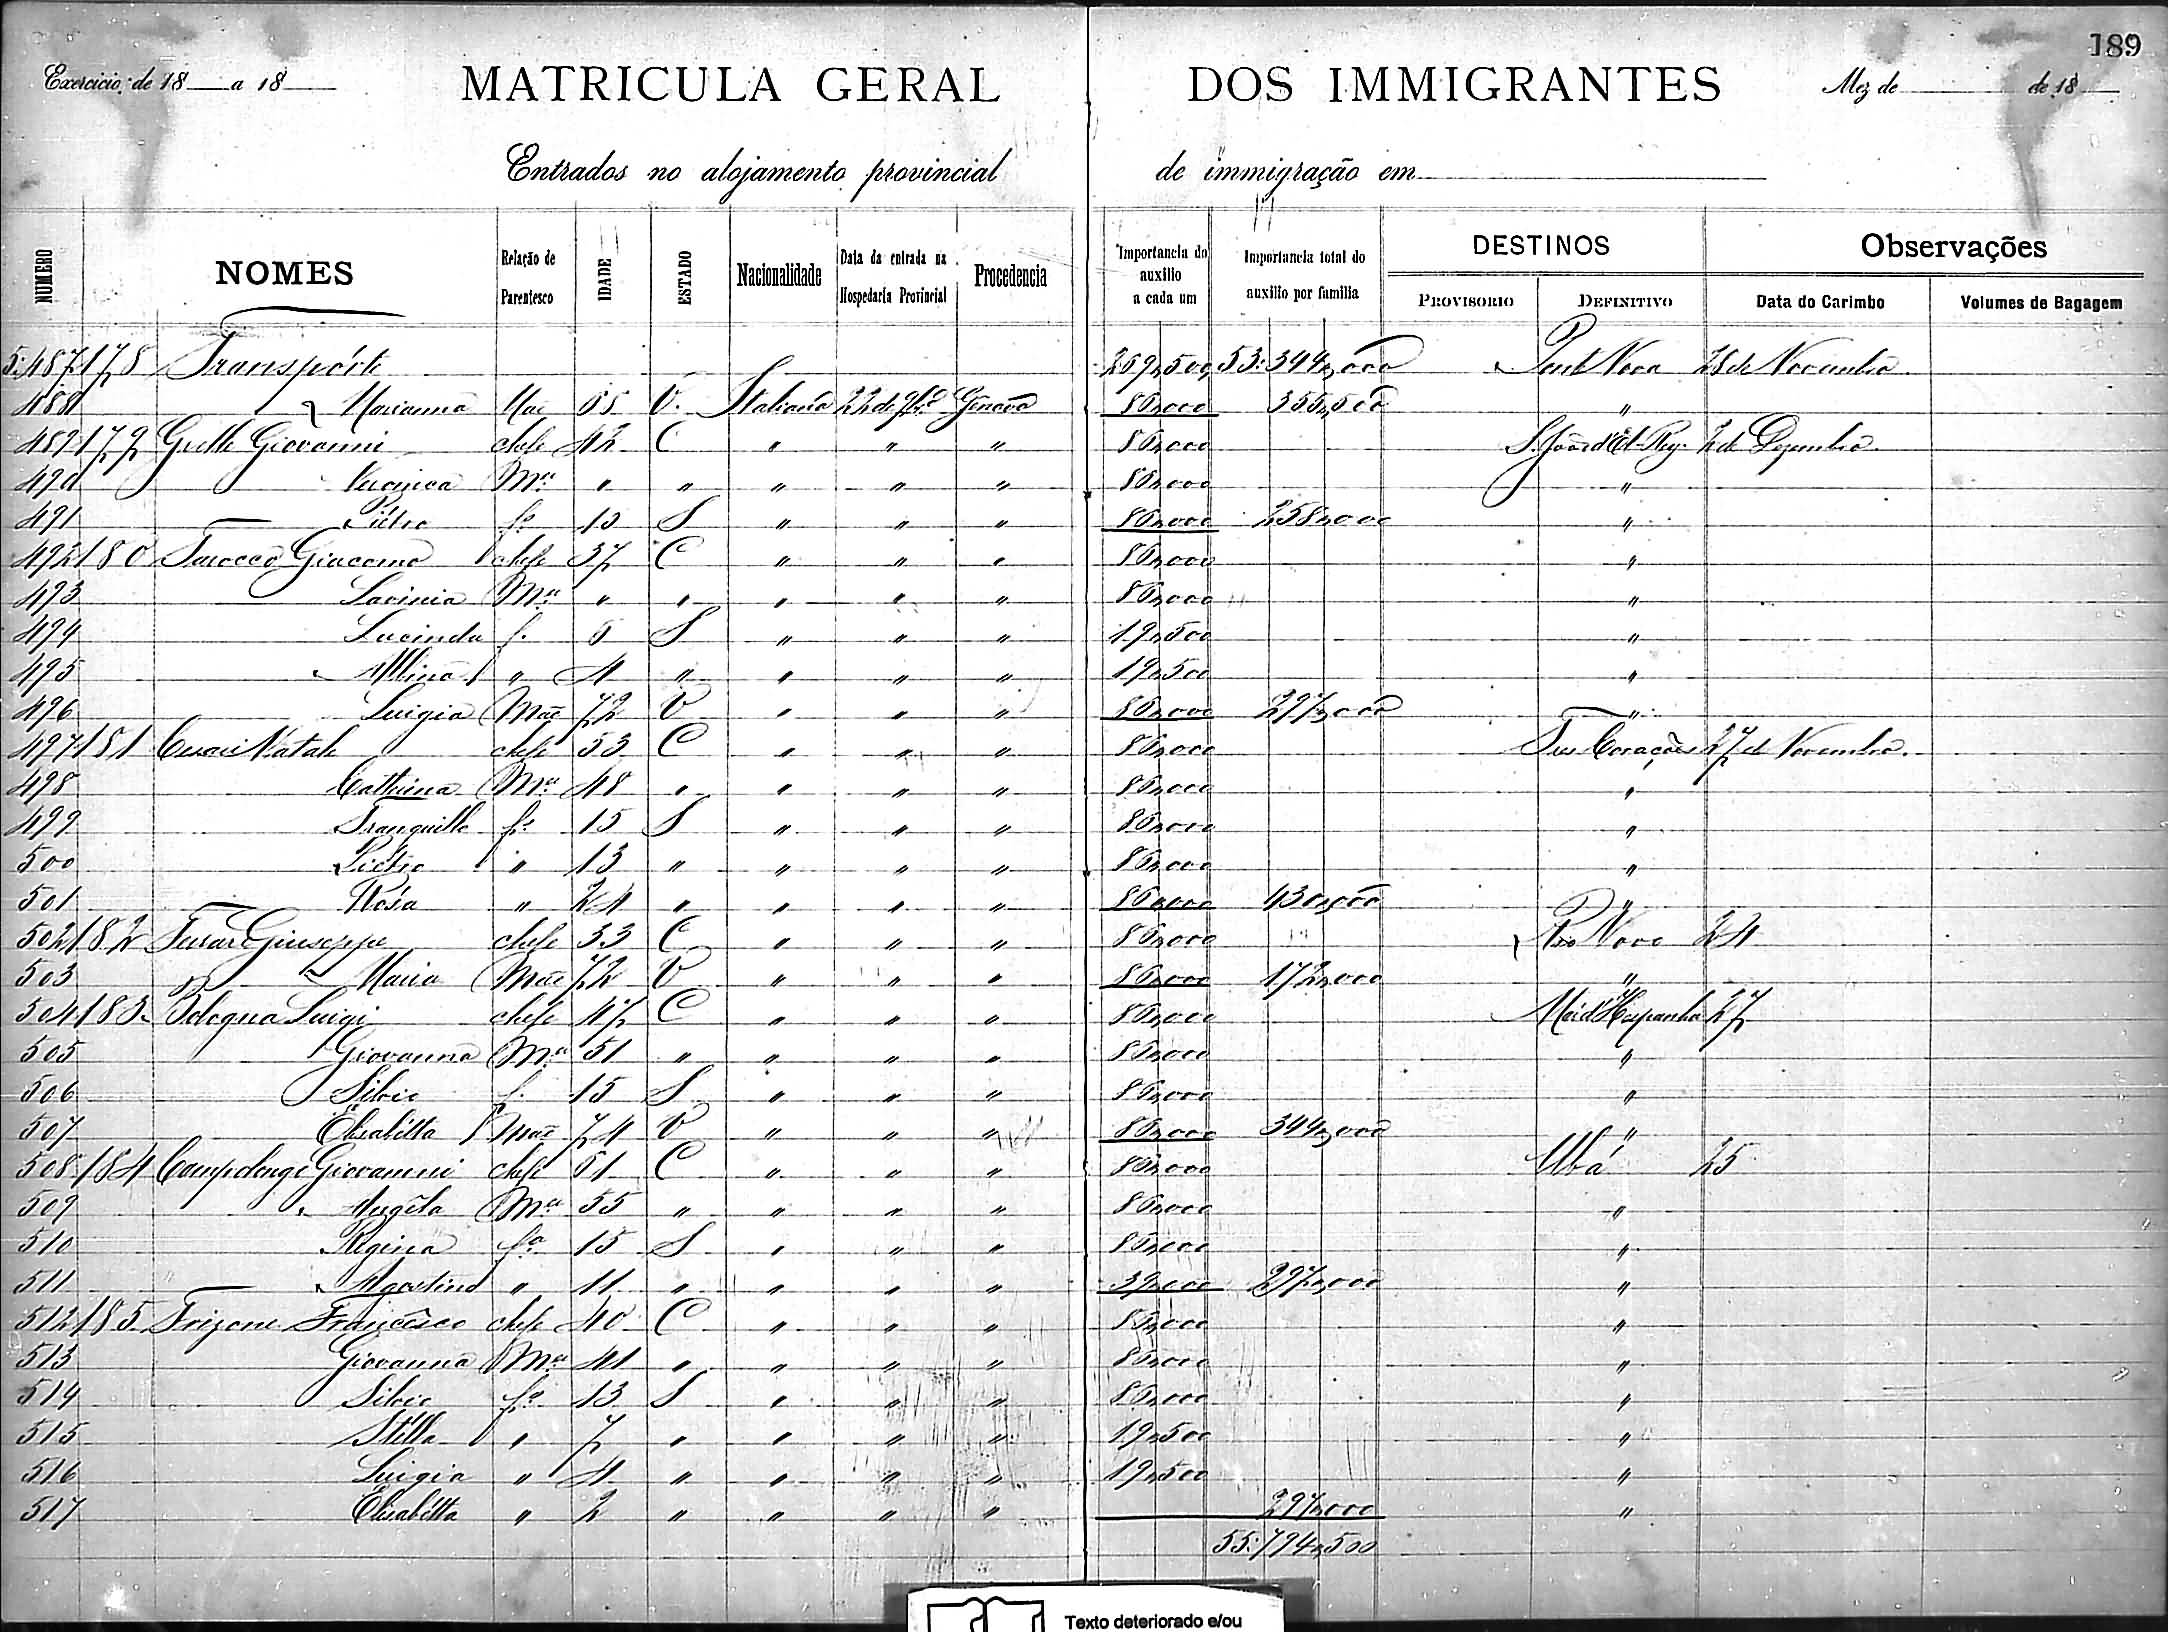 189
Exercicio de 18 a 18 MATRICULA GERAL DOS IMMIGRANTES Mez de de 18
Entrados no alojamento provincial de immigração em
NUMERO NOMES Relação de Parentesco IDADE ESTADO Nacionalidade Data da entrada na Hospedaria Provincial Procedencia Importancia do auxilio a cada um Importancia total do auxilio por familia DESTINOS PROVISORIO DEFINITIVO Observações Data do Carimbo Volumes de Bagagem
5:487 178 Transporte 269,500 53:344,000 28 de Novembro
488 Marianna Mãe 65 V. Italiana 22 de 9bro Genova 86,000 355,500 "
489 179 Giovanni chefe 42 C " " " 86,000 S. João d'El-Rey 2 de Dezembro
490 Mer " " " " " 86,000 "
491 Pietro fo 13 S " " " 86,000 258,000 "
492 180 Giacomo chefe 37 C " " " 86,000 "
493 Lavinia Mer " " " " " 86,000 "
494 Lucinda f. 6 S " " " 19,500 "
495 " 4 " " " " 19,500 "
496 Luigia Mãe 72 V " " " 86,000 297,000 "
497 181 Natale chefe 53 C " " " 86,000 Tres Corações 27 de Novembro.
498 Catterina Mer 48 " " " " 86,000 "
499 Tranquillo fo 15 S " " " 86,000 "
500 Pietro " 13 " " " " 86,000 "
501 Rosa " 24 " " " " 86,000 430,000 "
502 182 Giuseppe chefe 33 C " " " 86,000 Rio Novo 24
503 Maria Mãe 72 V " " " 86,000 172,000 "
504 183 Bologna Luigi chefe 47 C " " " 86,000 Mar d'Hespanha 27
505 Giovanna Mer 51 " " " " 86,000 "
506 Silvio f. 15 S " " " 86,000 "
507 Elisabetta Mãe 74 V " " " 86,000 344,000 "
508 184 Campolongo Giovanni chefe 61 C " " " 86,000 Ubá 25
509 Angela Mer 55 " " " " 86,000 "
510 Regina fa 15 S " " " 86,000 "
511 Agostino " 11 " " " " 39,000 297,000 "
512 185 Frizone Francesco chefe 40 C " " " 86,000 "
513 Giovanna Mer 41 " " " " 86,000 "
514 Silvio fo 13 S " " " 86,000 "
515 Stella " 7 " " " " 19,500 "
516 Luigia " 4 " " " " 19,500 "
517 Elisabetta " 2 " " " " 297,000 "
55:794,500
Texto deteriorado e/ou